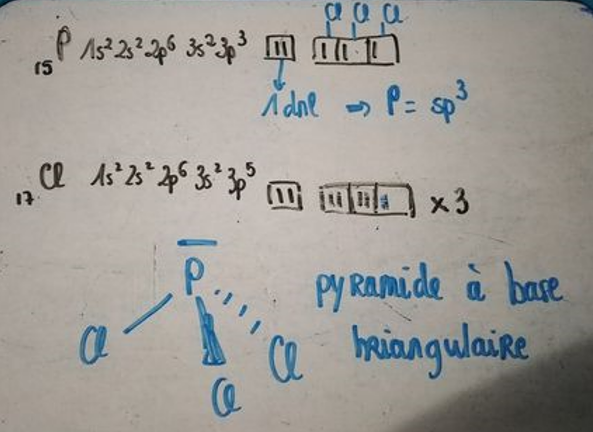 Cl Cl Cl
₁₅P 1s² 2s² 2p⁶ 3s² 3p³
1 dnl ⇒ P = sp³
₁₇Cl 1s² 2s² 2p⁶ 3s² 3p⁵ x 3
P
Cl Cl Cl
pyramide à base
triangulaire